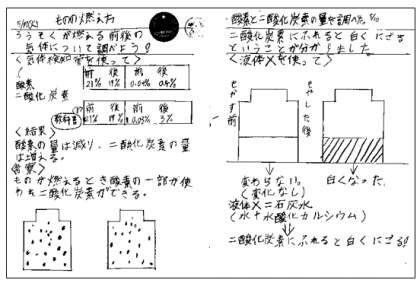 5/10(火) ものの燃え方
ろうそくが燃える前後の
気体について調べよう。
<気体検知管を使って>
前 後 前 後
酸素 21% 17% 0.04%
二酸化炭素
前 後 前 後
教科書 21% 17% 0.03% 3%
<結果>
酸素の量は減り、二酸化炭素の量
は増える。
<考察>
ものが燃えるとき酸素の一部が使
われ二酸化炭素ができる。
酸素と二酸化炭素の量を調べた。
二酸化炭素にふれると白くにごる
ということが分かりました
<液体Xを使って>
もやす前
もやした後
変わらない。
(変化なし)
白くなった。
液体X=石灰水
(水+水酸化カルシウム)
二酸化炭素にふれると白くにごる!!